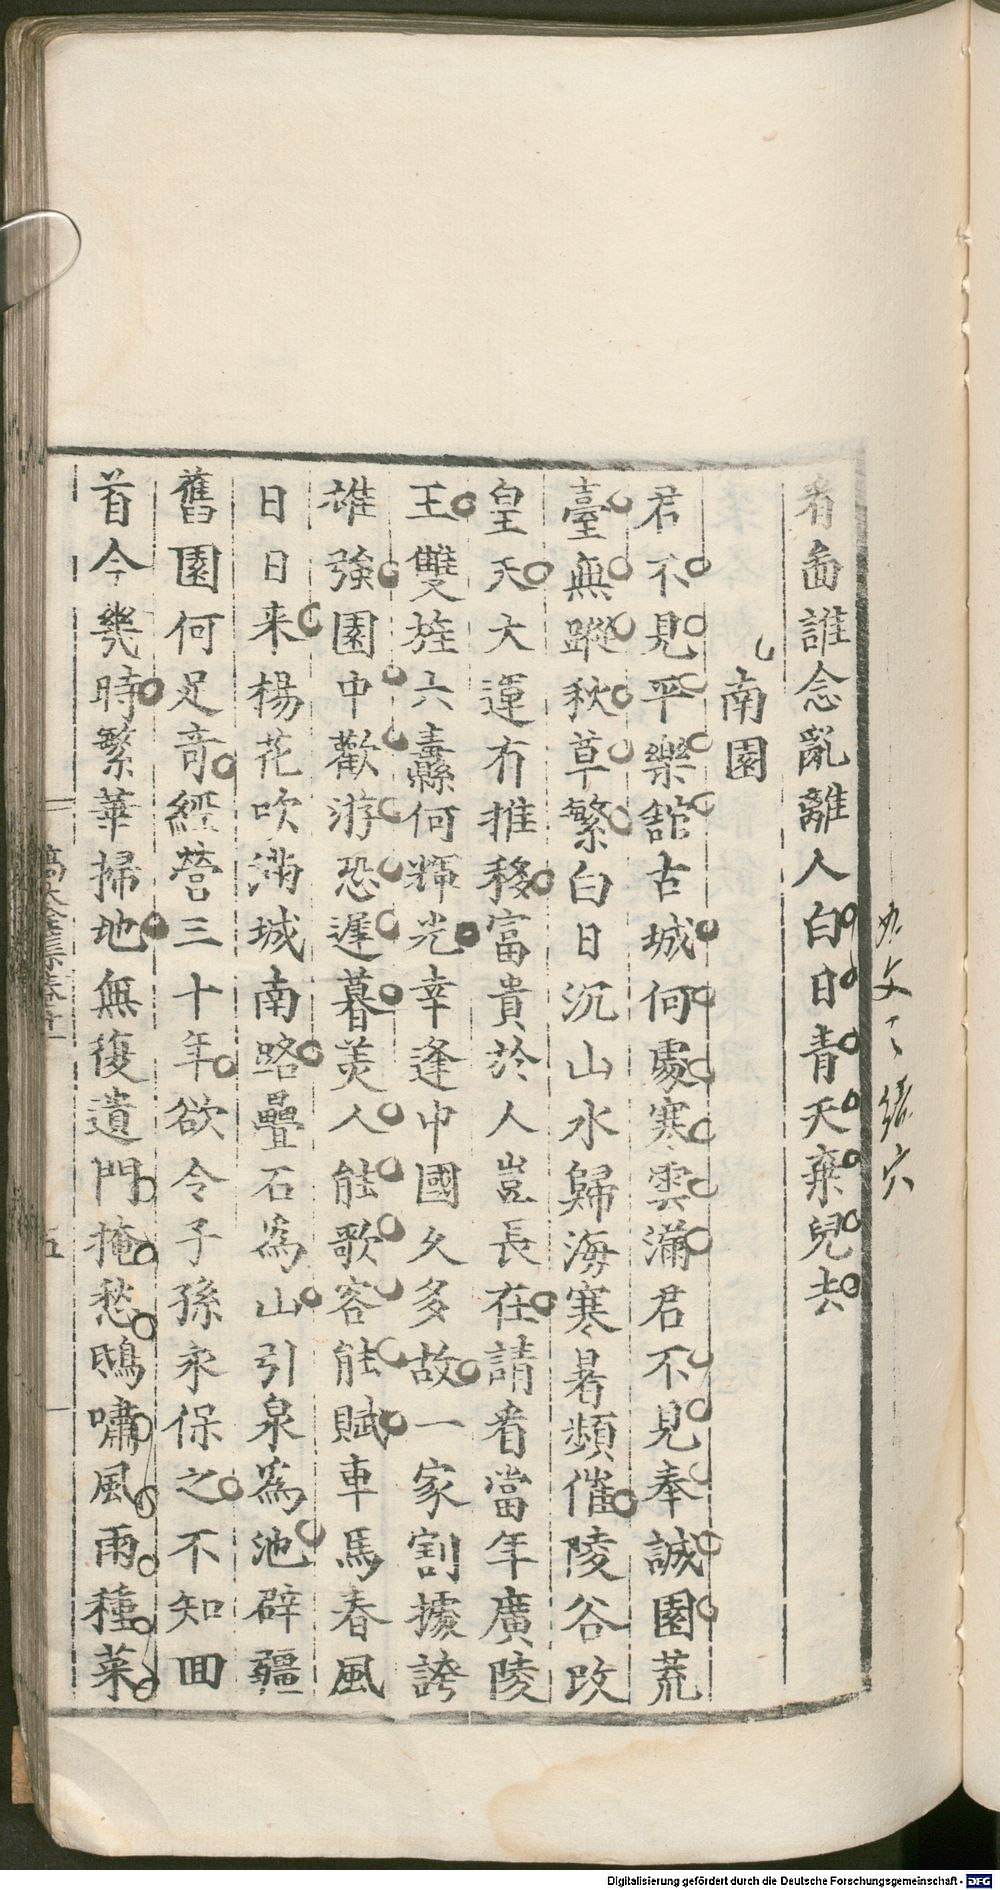 看面誰念亂離人白日青天棄兒去
南園
君不見平樂舘古城何處寒雲滿君不見奉誠園荒
臺無蹤秋草繁白日沉山水歸海寒暑頻催陵谷改
皇天大運有推移富貴於人豈長在請看當年廣陵
王雙旌六纛何輝光幸逢中國久多故一家割據誇
雄強園中歡游恐遲暮美人能歌客能賦車馬春風
日日来楊花吹滿城南路疊石為山引泉為池辟疆
舊園何足竒經營三十年欲令子孫永保之不知囬
首今幾時繁華掃地無復遺門掩愁鴟嘯風雨種菜
五
Digitalisierung gefördert durch die Deutsche Forschungsgemeinschaft - DFG